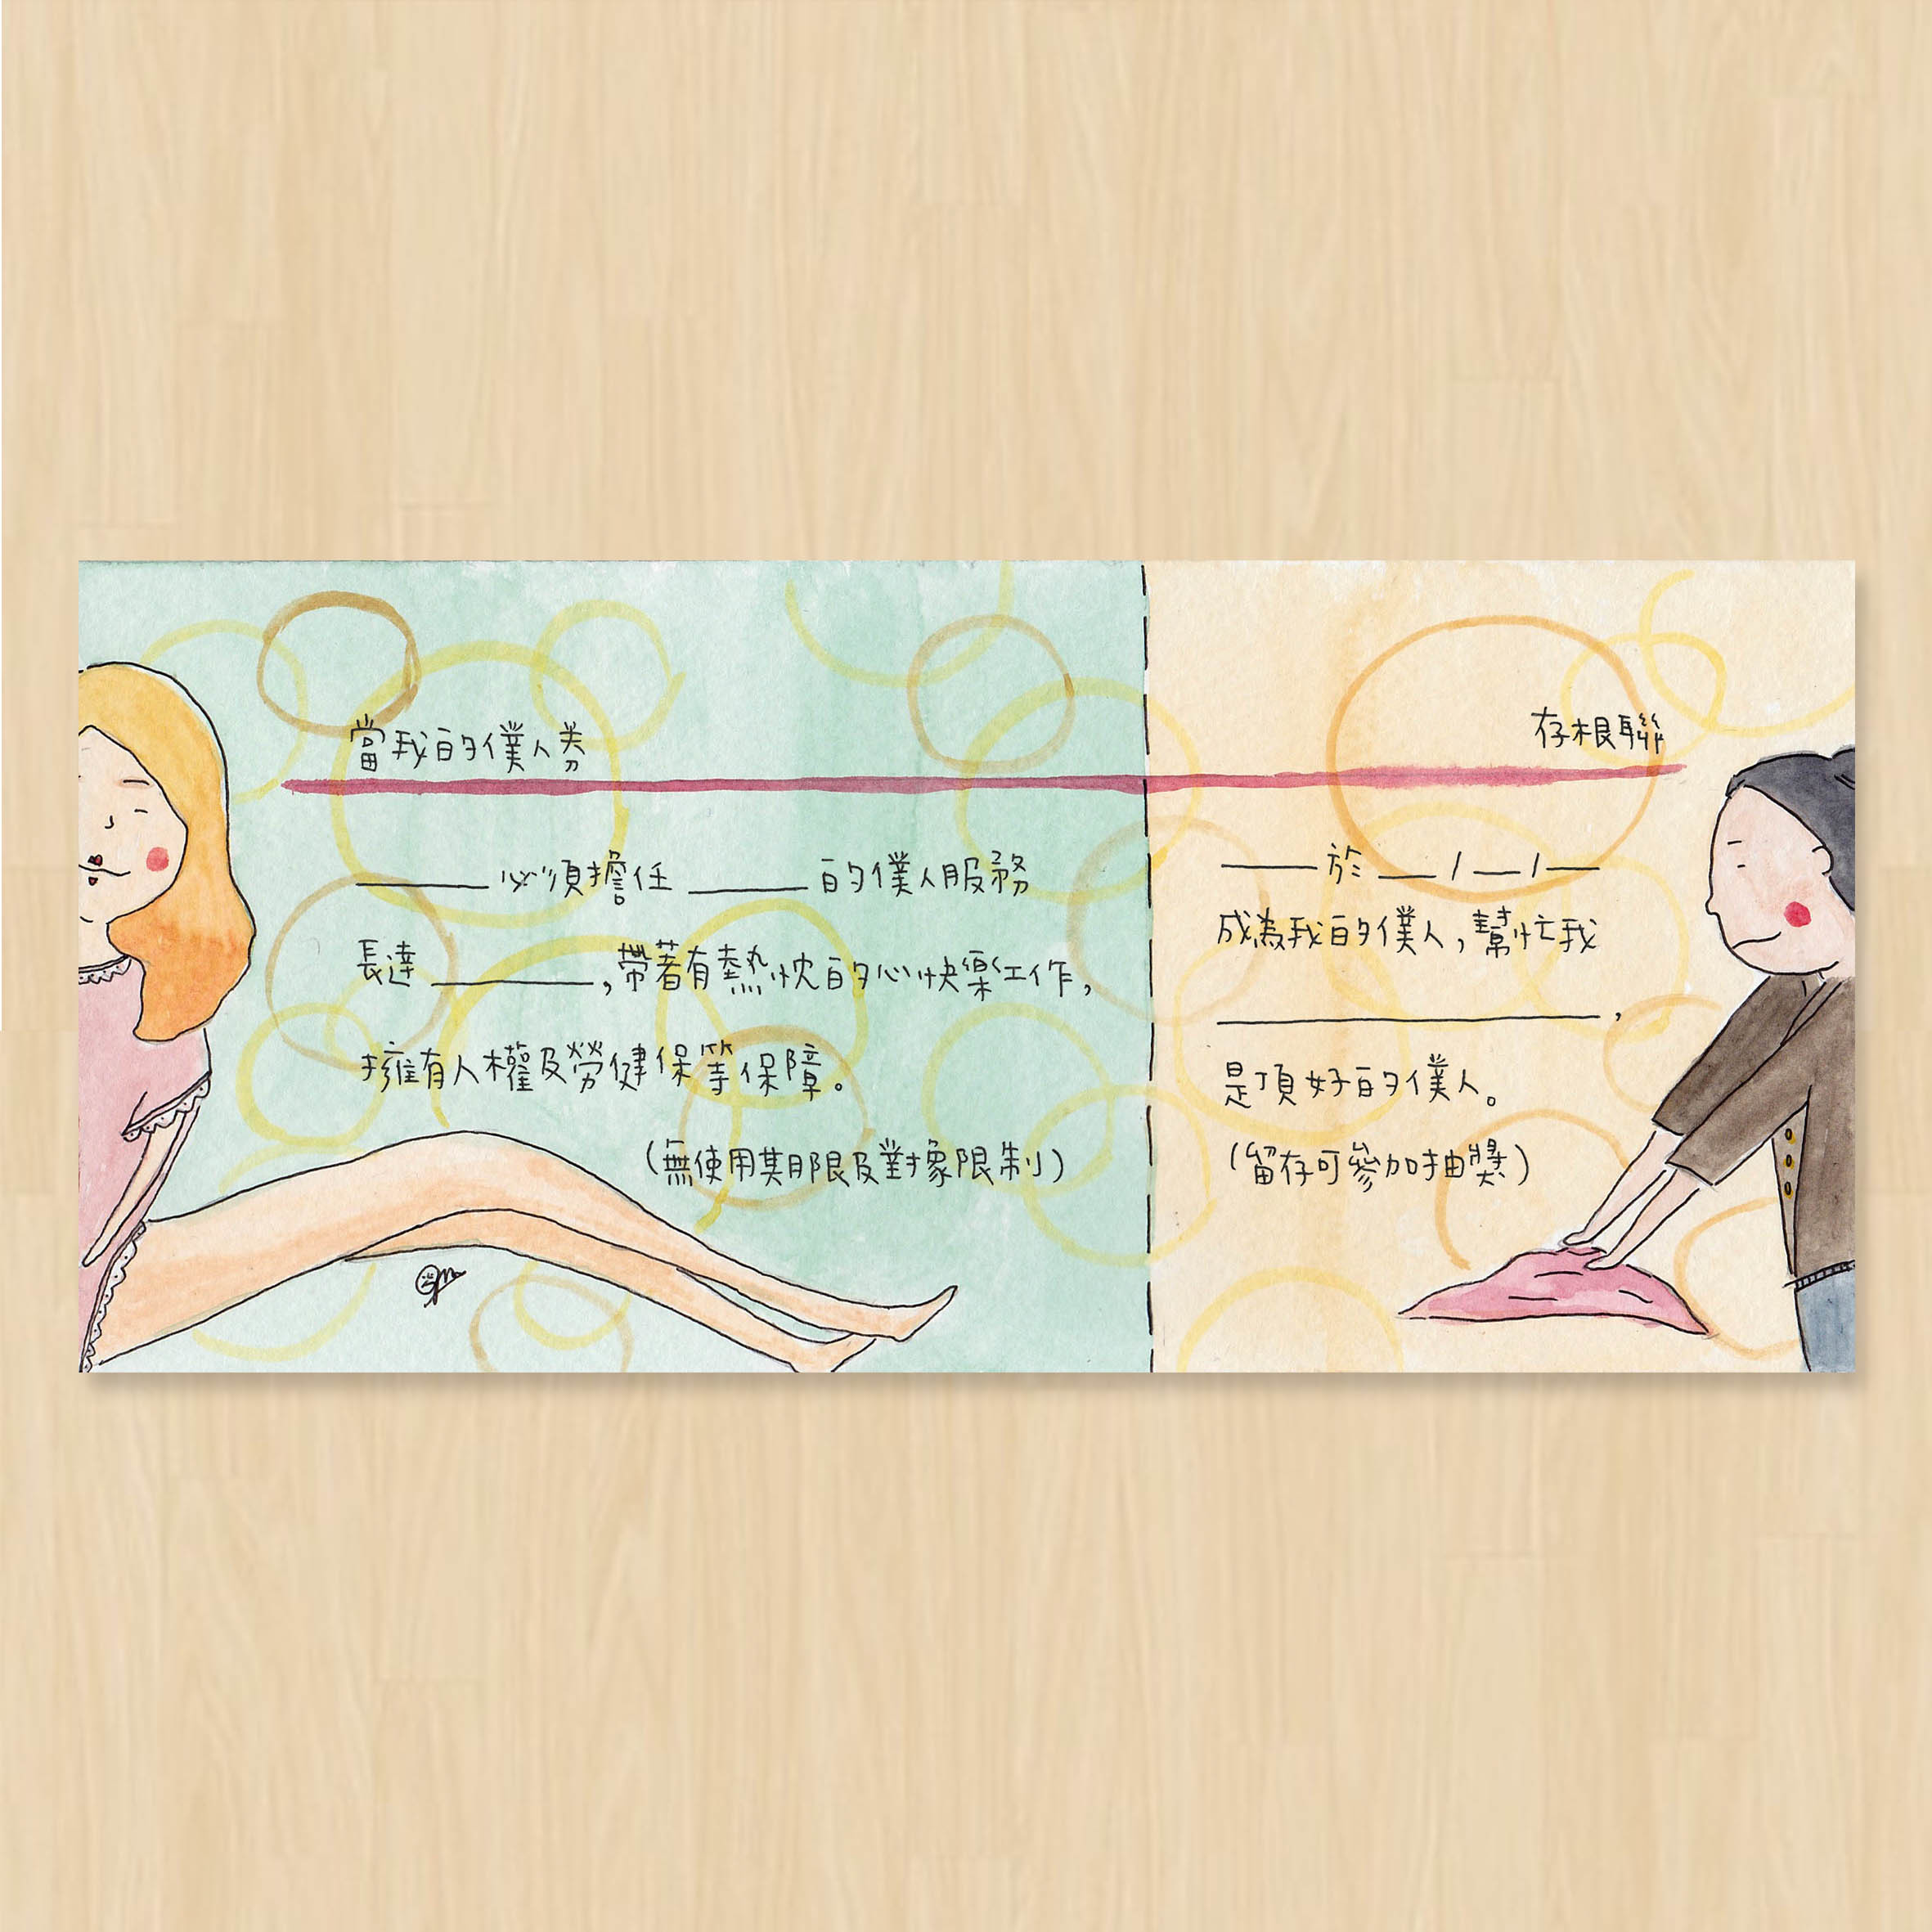 當我的僕人券
______必須擔任______的僕人服務
長達________,帶著有熱忱的心快樂工作,
擁有人權及勞健保等保障。
(無使用期限及對象限制)
存根聯
_____於___/___/___
成為我的僕人,幫忙我
____________________,
是頂好的僕人。
(留存可參加抽獎)